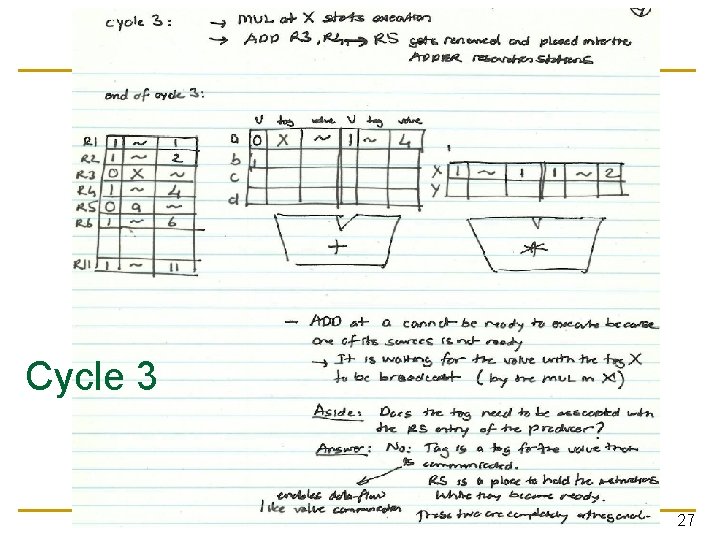 cycle 3: → MUL at X starts execution
→ ADD R3, R4 → R5 gets renamed and placed into the
ADDER reservation stations
end of cycle 3:
V tag value V tag value
R1 1 ~ 1
R2 1 ~ 2
R3 0 X ~
R4 1 ~ 4
R5 0 a ~
R6 1 ~ 6
R11 1 ~ 11
a 0 X ~ 1 ~ 4
b 1
c
d
X 1 ~ 1 1 ~ 2
Y
+
*
— ADD at a cannot be ready to execute because
one of its sources is not ready
→ It is waiting for the value with the tag X
to be broadcast (by the MUL in X)
Cycle 3
Aside: Does the tag need to be associated with
the RS entry of the producer?
Answer: No: Tag is a tag for the value that
is communicated.
RS is a place to hold the instructions
while they become ready.
These two are completely orthogonal.
enables data-flow
like value communication
27